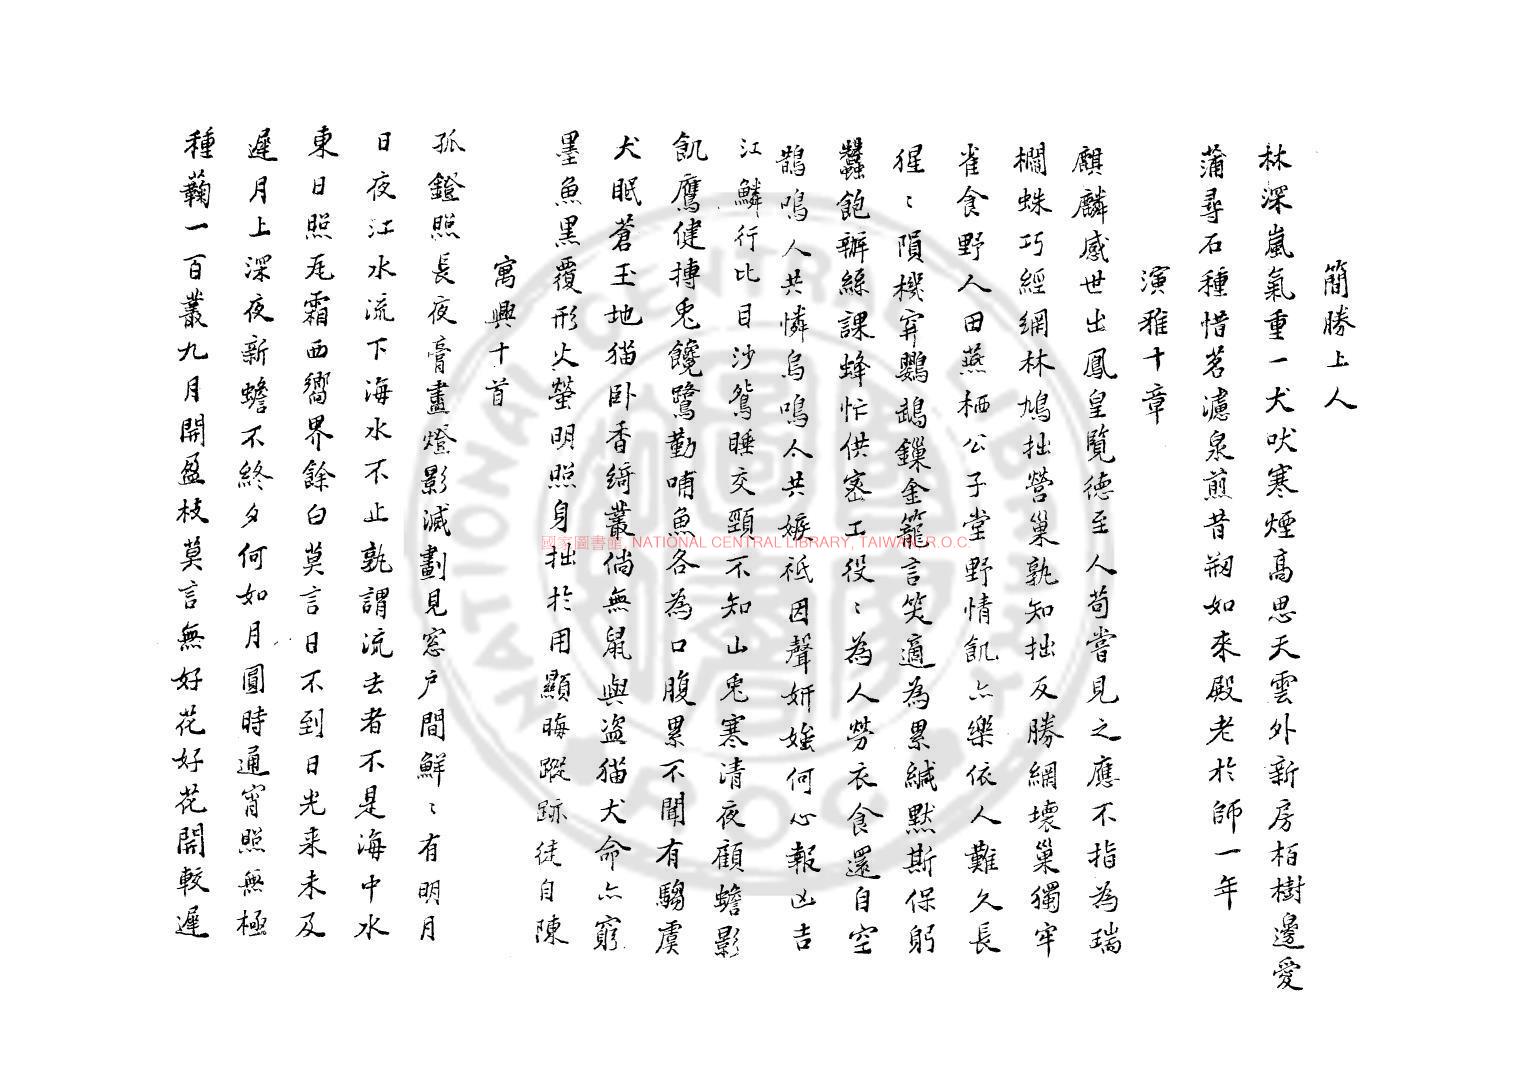 簡勝上人
林深嵐氣重一犬吠寒煙高思天雲外新房栢樹邊愛
蒲尋石種惜茗濾泉煎昔朔如來殿老於師一年
演雅十章
麒麟感世出鳳皇覽德至人苟嘗見之應不指為瑞
櫩蛛巧經網林鳩拙營巢孰知拙反勝網壞巢獨牢
雀食野人田燕栖公子堂野情飢亦樂依人難久長
猩〻隕機穽鸚鵡鏁金籠言笑適為累緘黙斯保躬
蠶飽辦絲課蜂忙供宻工役〻為人勞衣食還自空
鵲鳴人共憐烏鳴人共嫉祇因聲妍媸何心報凶吉
江鱗行比目沙鴛睡交頸不知山兎寒清夜顧蟾影
飢鷹健搏兎饞鷺勤哺魚各為口腹累不聞有騶虞
犬眠蒼玉地猫卧香綺叢倘無鼠與盜猫犬命亦窮
墨魚黑覆形火螢明照身拙於用顯晦蹤跡徒自陳
寓興十首
孤鐙照長夜膏盡燈影滅劃見窓户間鮮〻有明月
日夜江水流下海水不止孰謂流去者不是海中水
東日照瓦霜西嚮界餘白莫言日不到日光来未及
遲月上深夜新蟾不終夕何如月圓時通宵照無極
種蘜一百叢九月開盈枝莫言無好花好花開較遲
國家圖書館, NATIONAL CENTRAL LIBRARY, TAIWAN, R.O.C.
NATIONAL CENTRAL LIBRARY
R.O.C